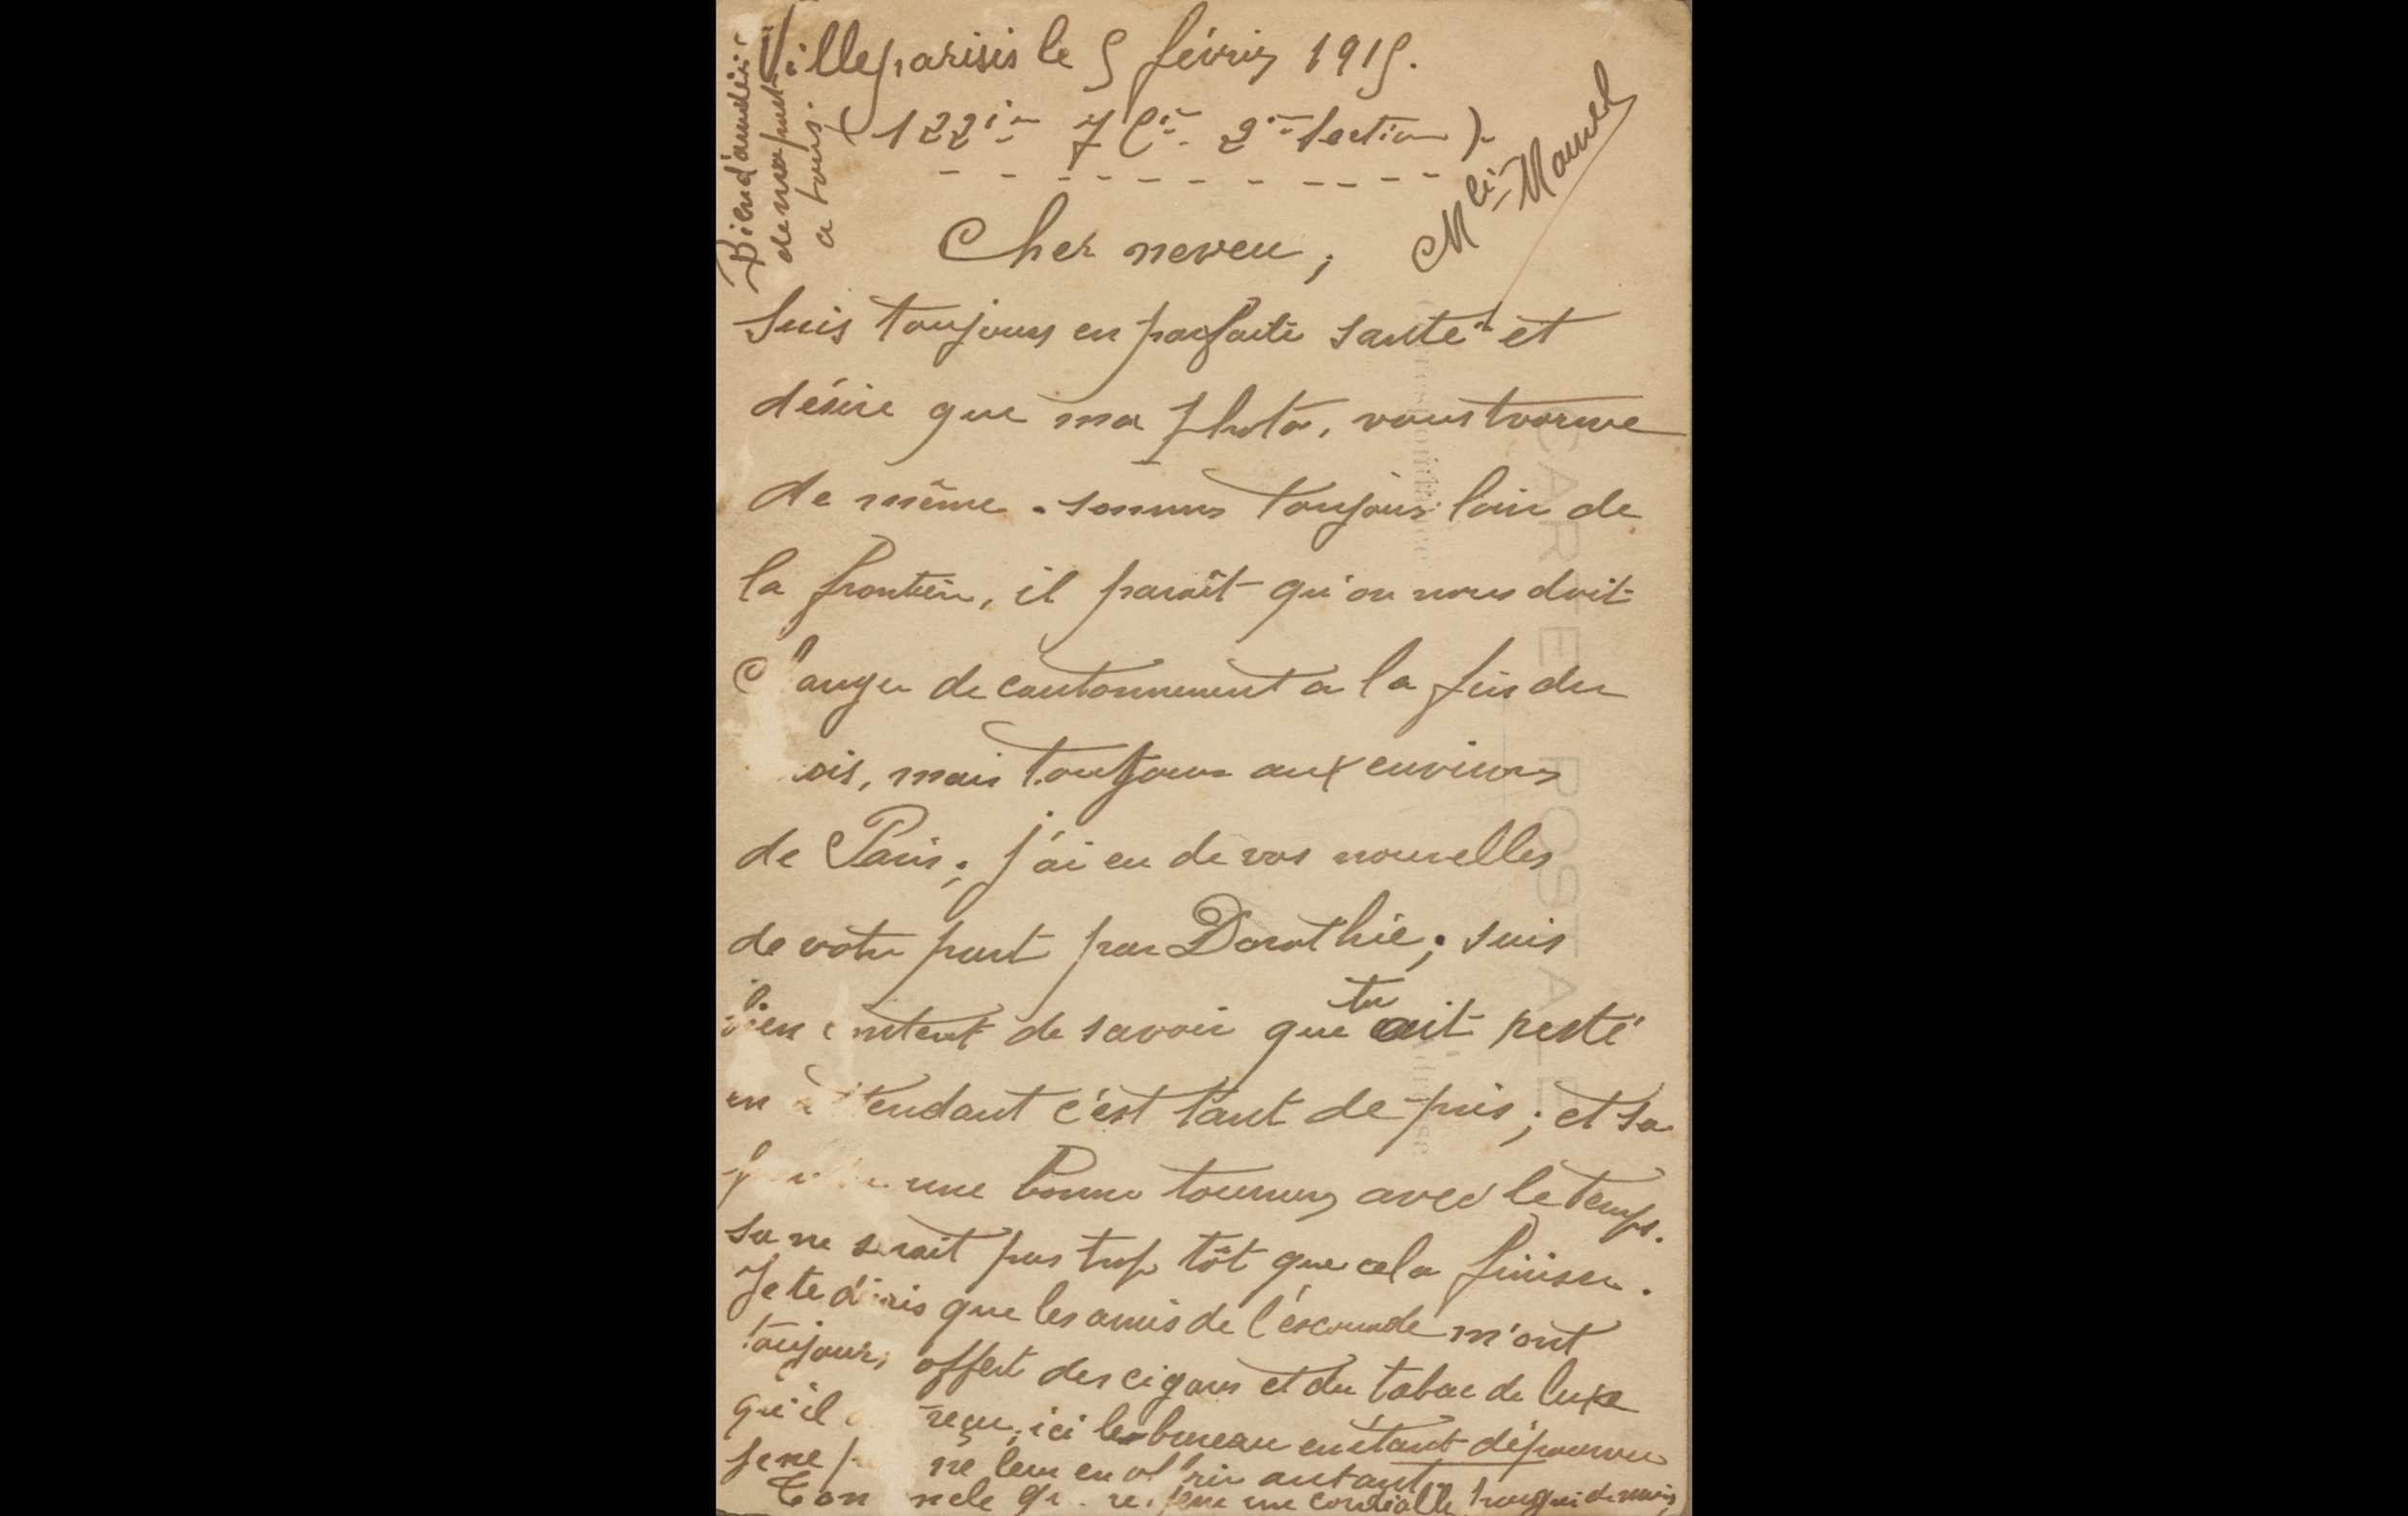 Villeparisis le 5 févrie 1915.
(122ie 7 Cie. 2ie section)
Mle Manuel
Bien d'amitiés
de ma part
a tous.
Cher neveu,
Suis toujours en parfaite santé et
désire que ma photo, vous trouve
de même. sommes toujours loin de
la frontière, il paraît qu'on nous doit
C anger de cantonnement a la fin du
ois, mais toutjours aux environs
de Paris; j'ai eu de vos nouvelles
de votre part par Dorothie; suis
bien c ntent de savoir que tu ait resté
en attendant c'est tant de pris; et sa
une bonne tournure avec le temps.
sa ne serait pas trop tôt que cela finisse.
Je te dirais que les amis de l'escouade m'ont
toujours offert des cigares et du tabac de luxe
qu'il reçu, ici les bureau en étant dépourvu
je ne p ne leur en offrir autant.
Ton ncle qu re une cordialle de main
CARTE POSTALE
Correspondance
Adresse